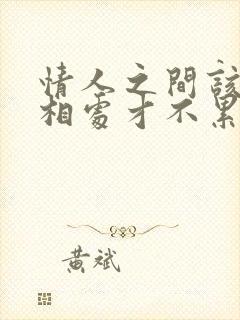 情人之間該
相處才不累
黃斌